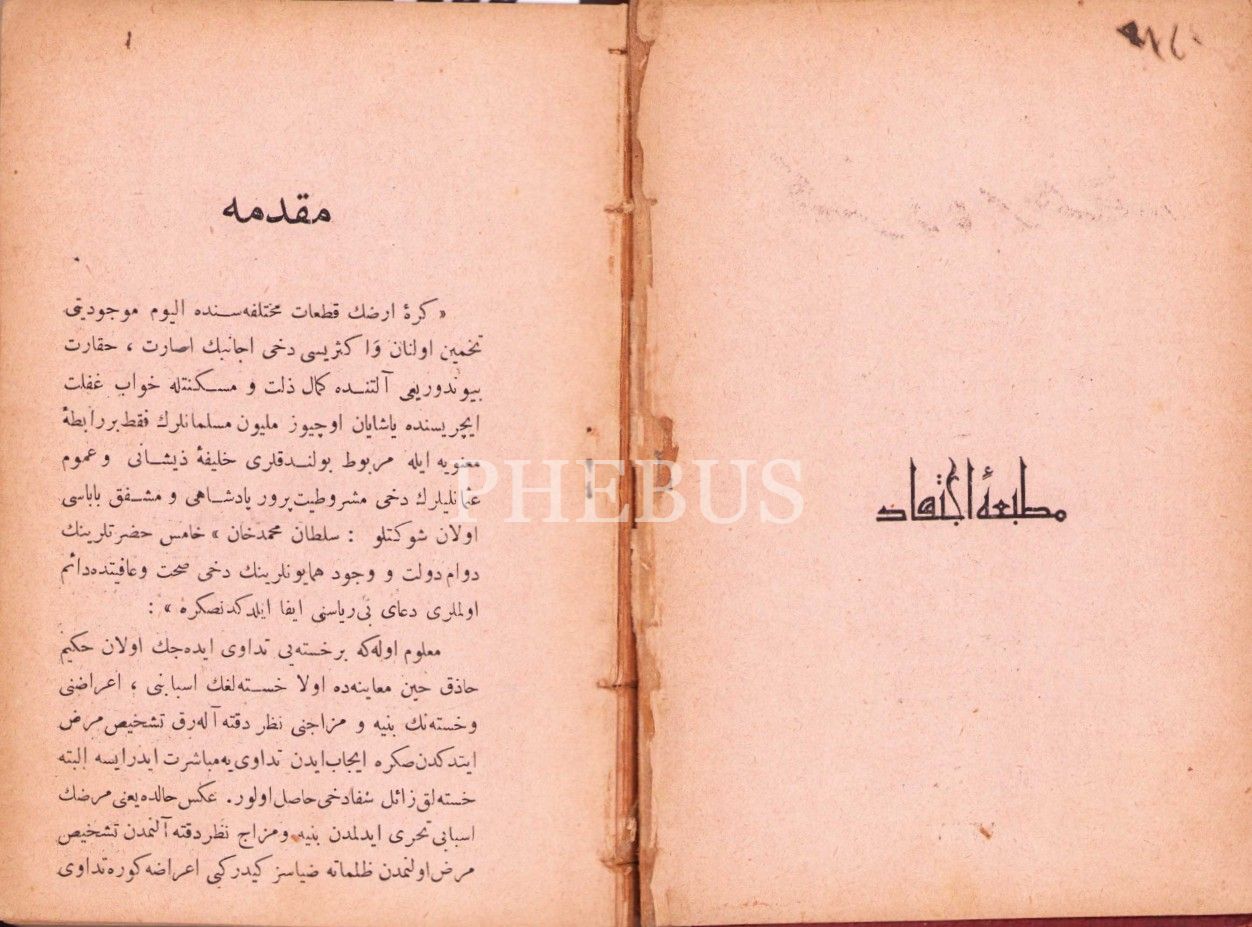 مطبعهٔ اجتهاد
١
مقدمه
« كرهٔ ارضك قطعات مختلفه‌سنده اليوم موجوديتی
تخمين اولنان و اكثريسی دخی اجانبك اصارت ، حقارت
بيوندوريغی آلتنده كمال ذلت و مسكنتله خواب غفلت
ايچريسنده ياشايان اوچيوز مليون مسلمانلرك فقط بر رابطهٔ
معنويه ايله مربوط بولندقلری خليفهٔ ذيشانی و عموم
عثمانليلرك دخی مشروطيت‌پرور پادشاهی و مشفق باباسی
اولان شوكتلو : سلطان محمدخان » خامس حضرتلرينك
دوام دولت و وجود همايونلرينك دخی صحت و عافيتده دائم
اولملری دعای بی‌رياسنی ايفا ايلدكدنصكره » :
معلوم اوله‌كه بر خسته‌یی تداوی ايده‌جك اولان حكيم
حاذق حين معاينه‌ده اولا خسته‌لغك اسبابنی ، اعراضنی
و خسته‌نك بنيه و مزاجنی نظر دقته آله‌رق تشخيص مرض
ايتدكدن‌صكره ايجاب‌ايدن تداوی‌يه مباشرت ايدرايسه البته
خسته‌لق زائل شفادخی حاصل اولور. عكس حالده يعنی مرضك
اسبابی تحری ايدلمدن بنيه و مزاج نظر دقته آلنمدن تشخيص
مرض اولنمدن ظلماته ضياسز كيدر كبی اعراضه كوره تداوی
PHEBUS